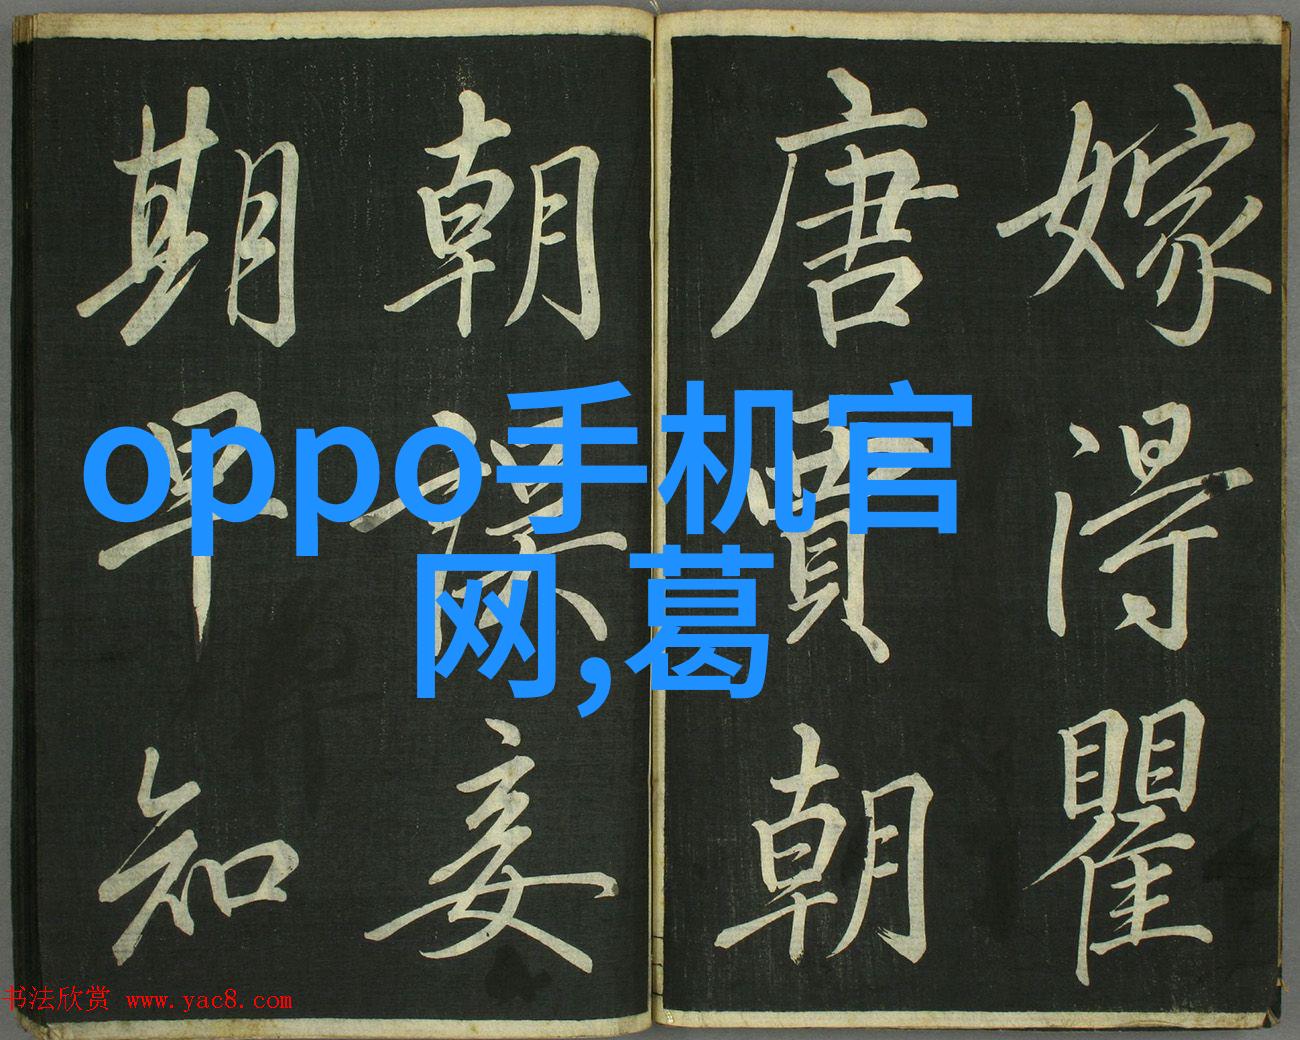 嫁得瞿
唐賈朝
朝誤妾
期早知
oppo手机官
网,葛
书法欣赏 www.yac8.com